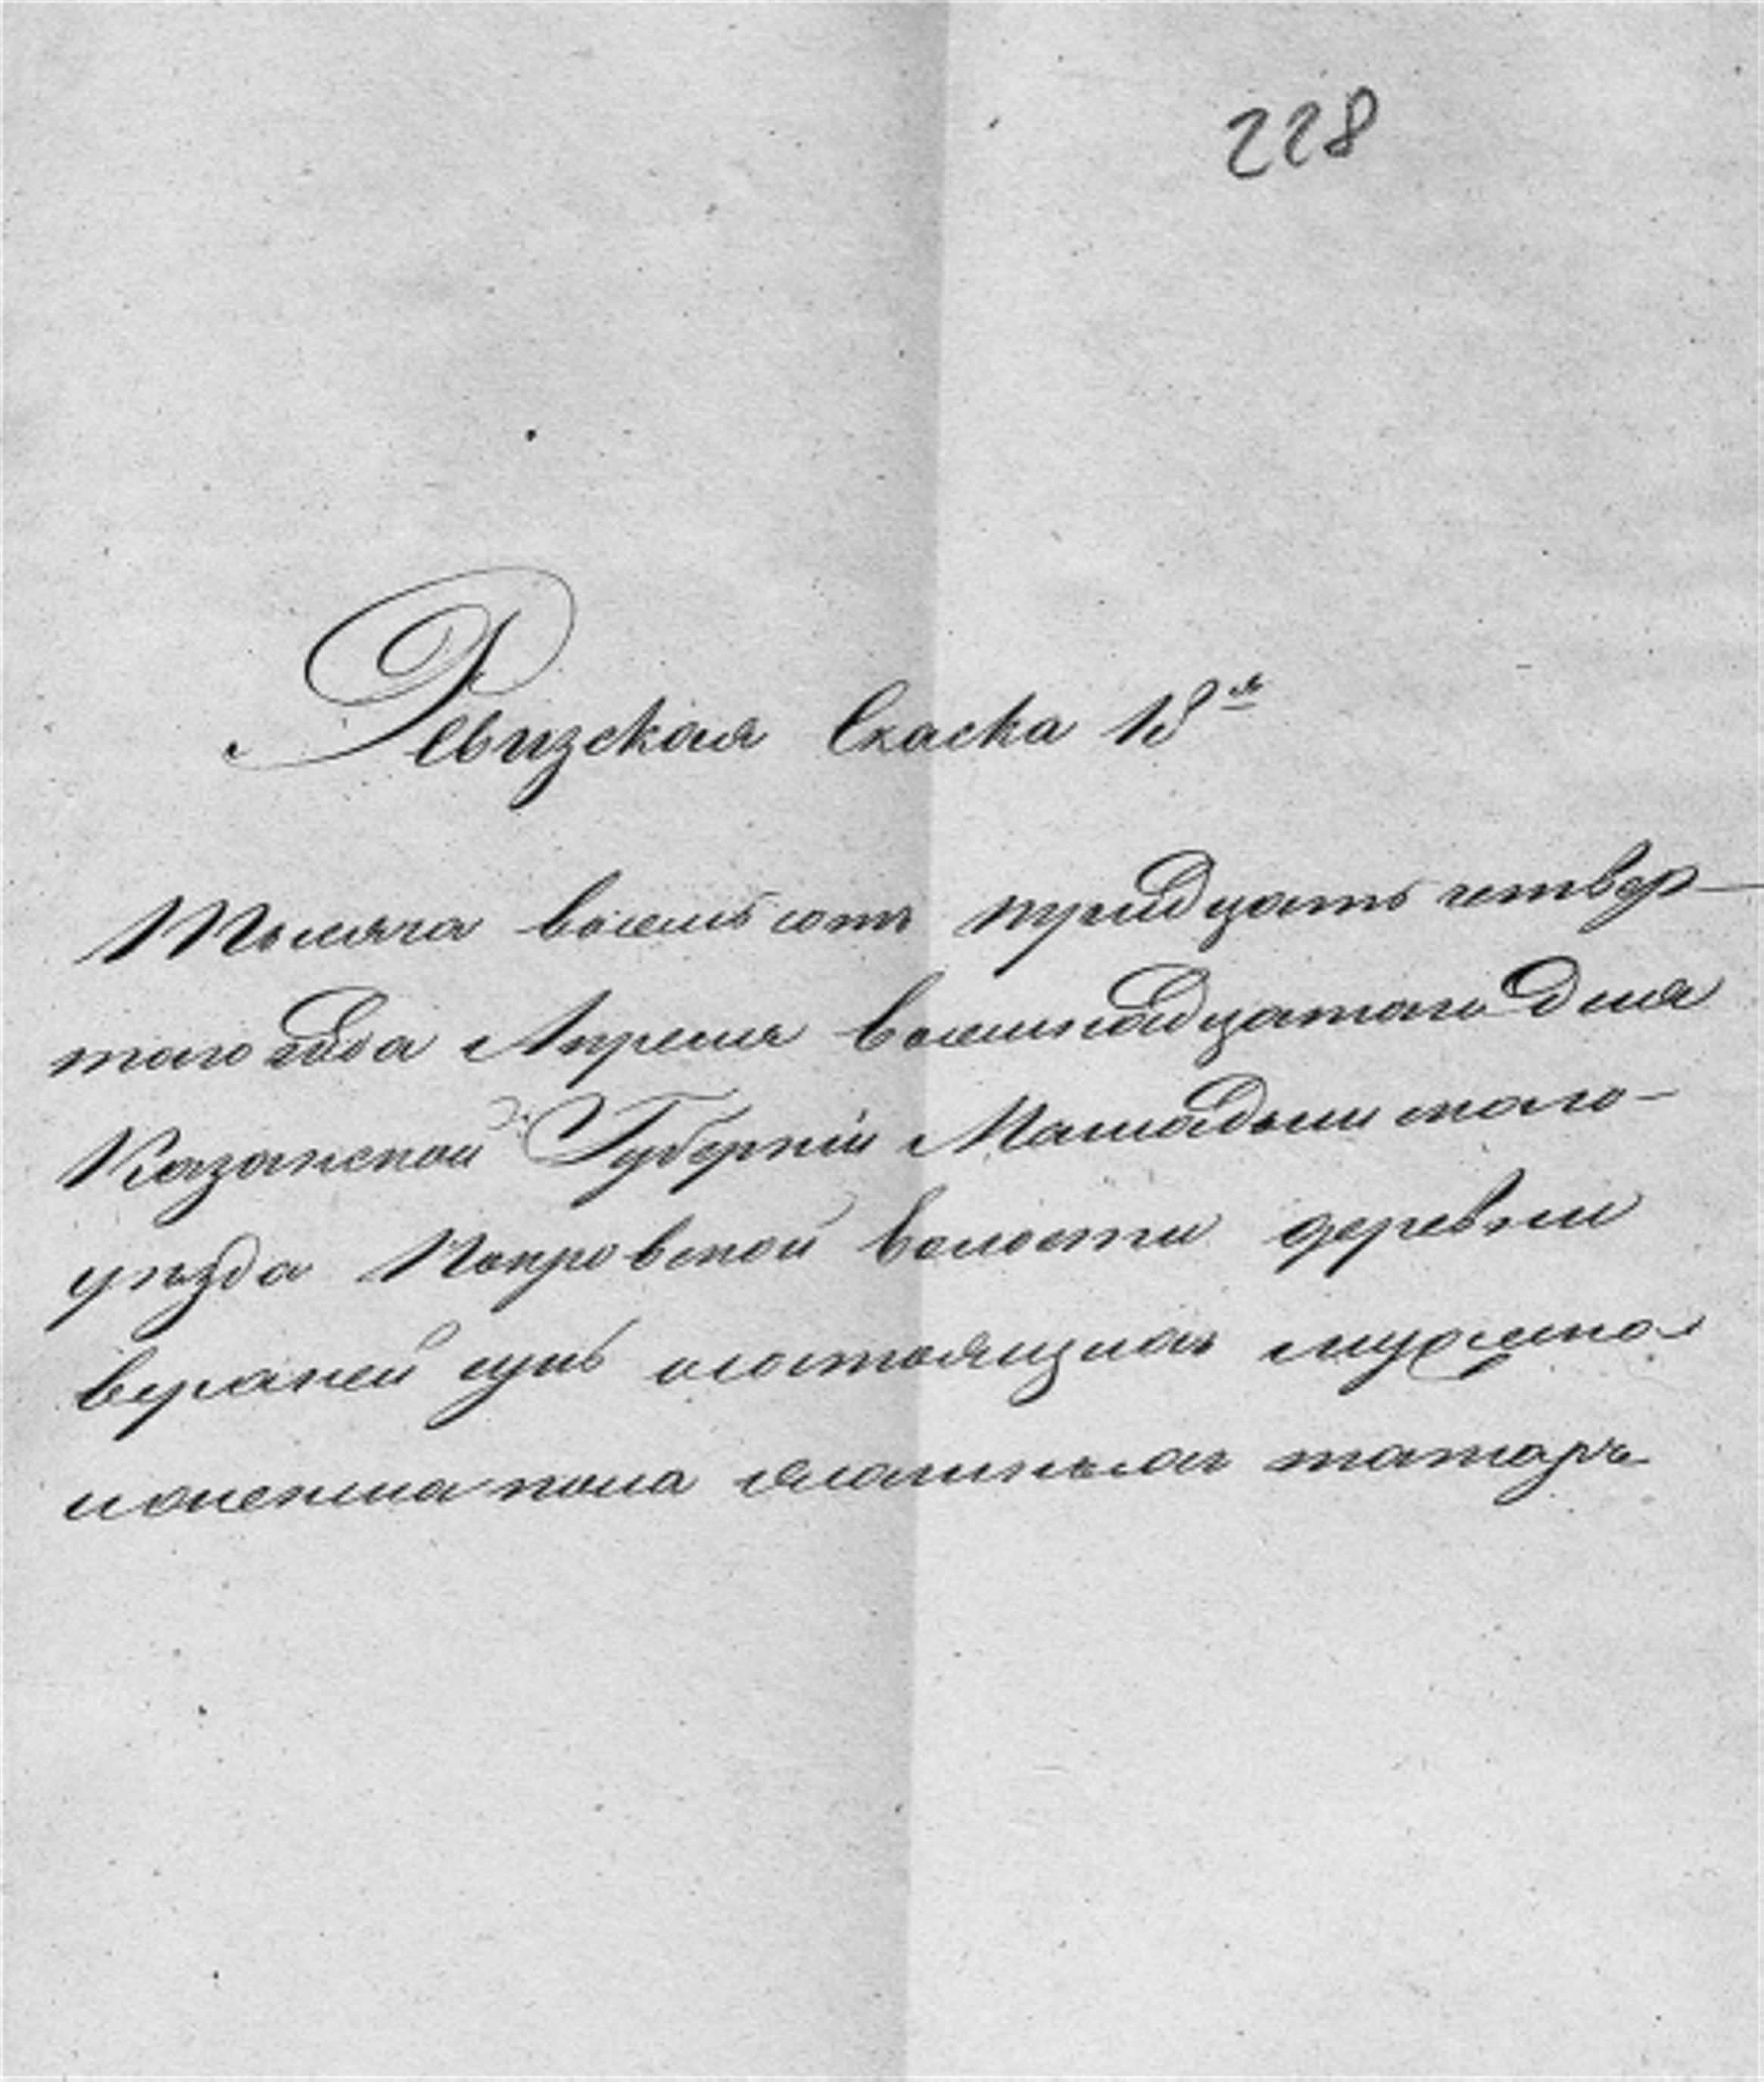 228
Ревизская Скаска 18я
Тысяча восемь сотъ тридцать четвер-
таго года Апреля восемнадцатаго дня
Казанской Губерніи Мамадышскаго
уезда Покровской волости деревни
верхней о состоящихъ мужска
и женска пола ясашныхъ татаръ